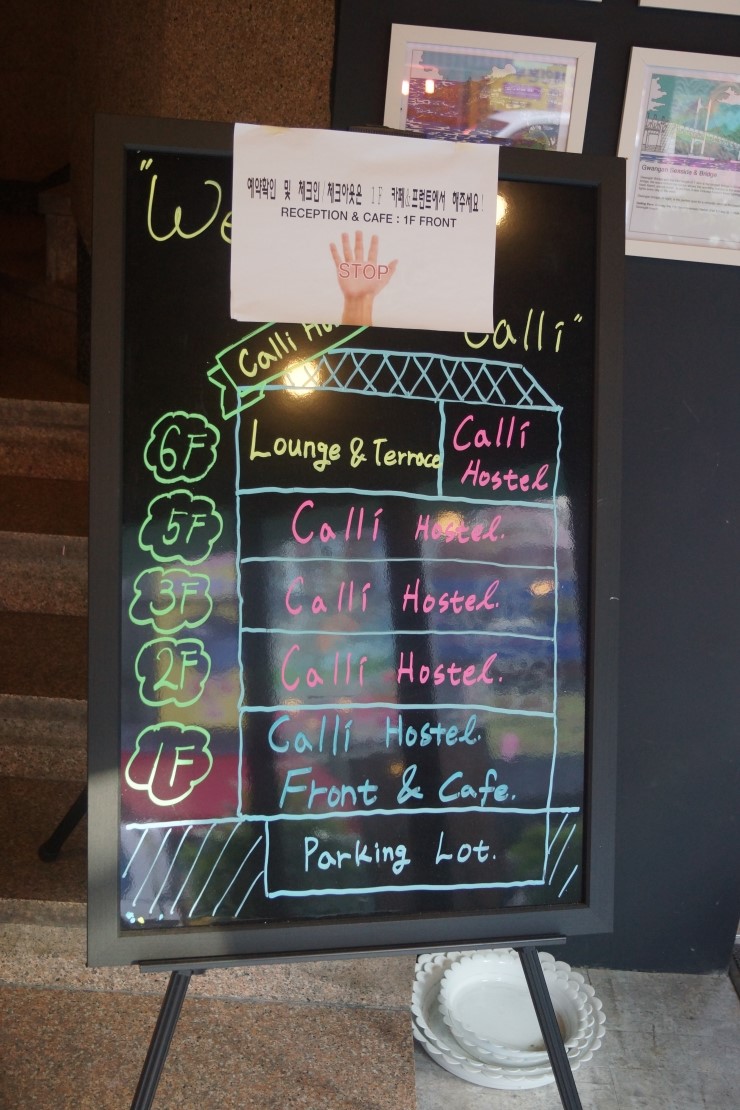 "We
예약확인 및 체크인/체크아웃은 1F 카페&프런트에서 해주세요!
RECEPTION & CAFE : 1F FRONT
STOP
Calli"
Calli
6F Lounge & Terrace Calli Hostel
5F Calli Hostel.
3F Calli Hostel.
2F Calli Hostel.
1F Calli Hostel.
Front & Cafe.
Parking Lot.
Gwangan Seaside & Bridge